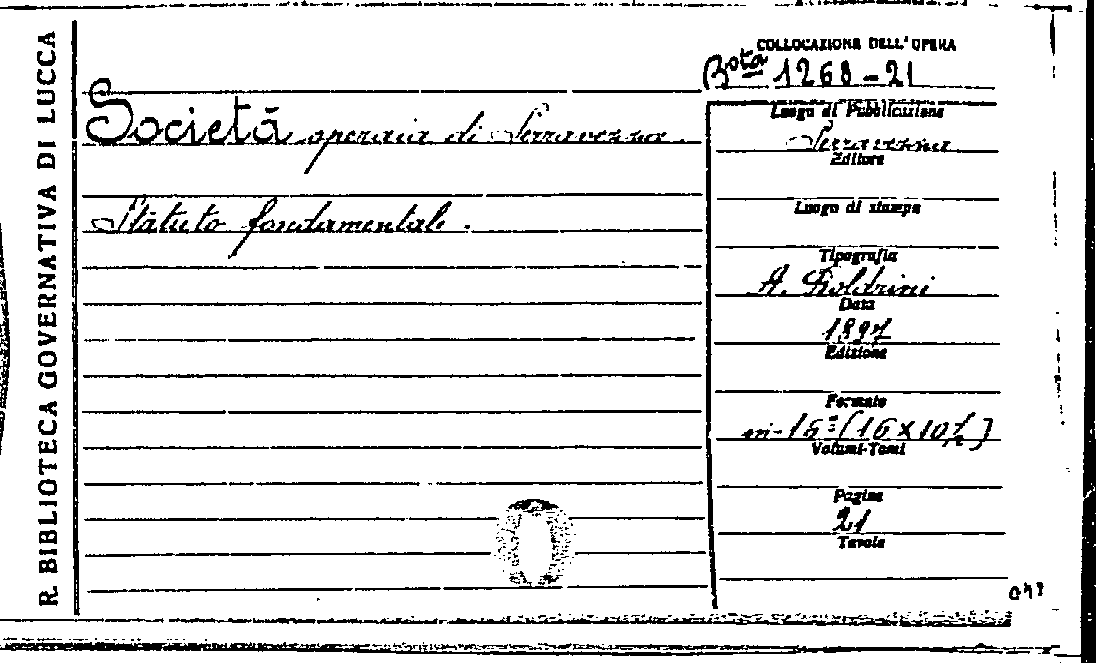 R. BIBLIOTECA GOVERNATIVA DI LUCCA
COLLOCAZIONE DELL'OPERA
Bota 1268-21
Società operaia di Serravezza.
Statuto fondamentale.
Luogo di Pubblicazione
Serravezza
Editore
Luogo di stampa
Tipografia
A. Boldrini
Data
1897
Edizione
Formato
in-16º (16 x 10½)
Volumi-Tomi
Pagine
21
Tavole